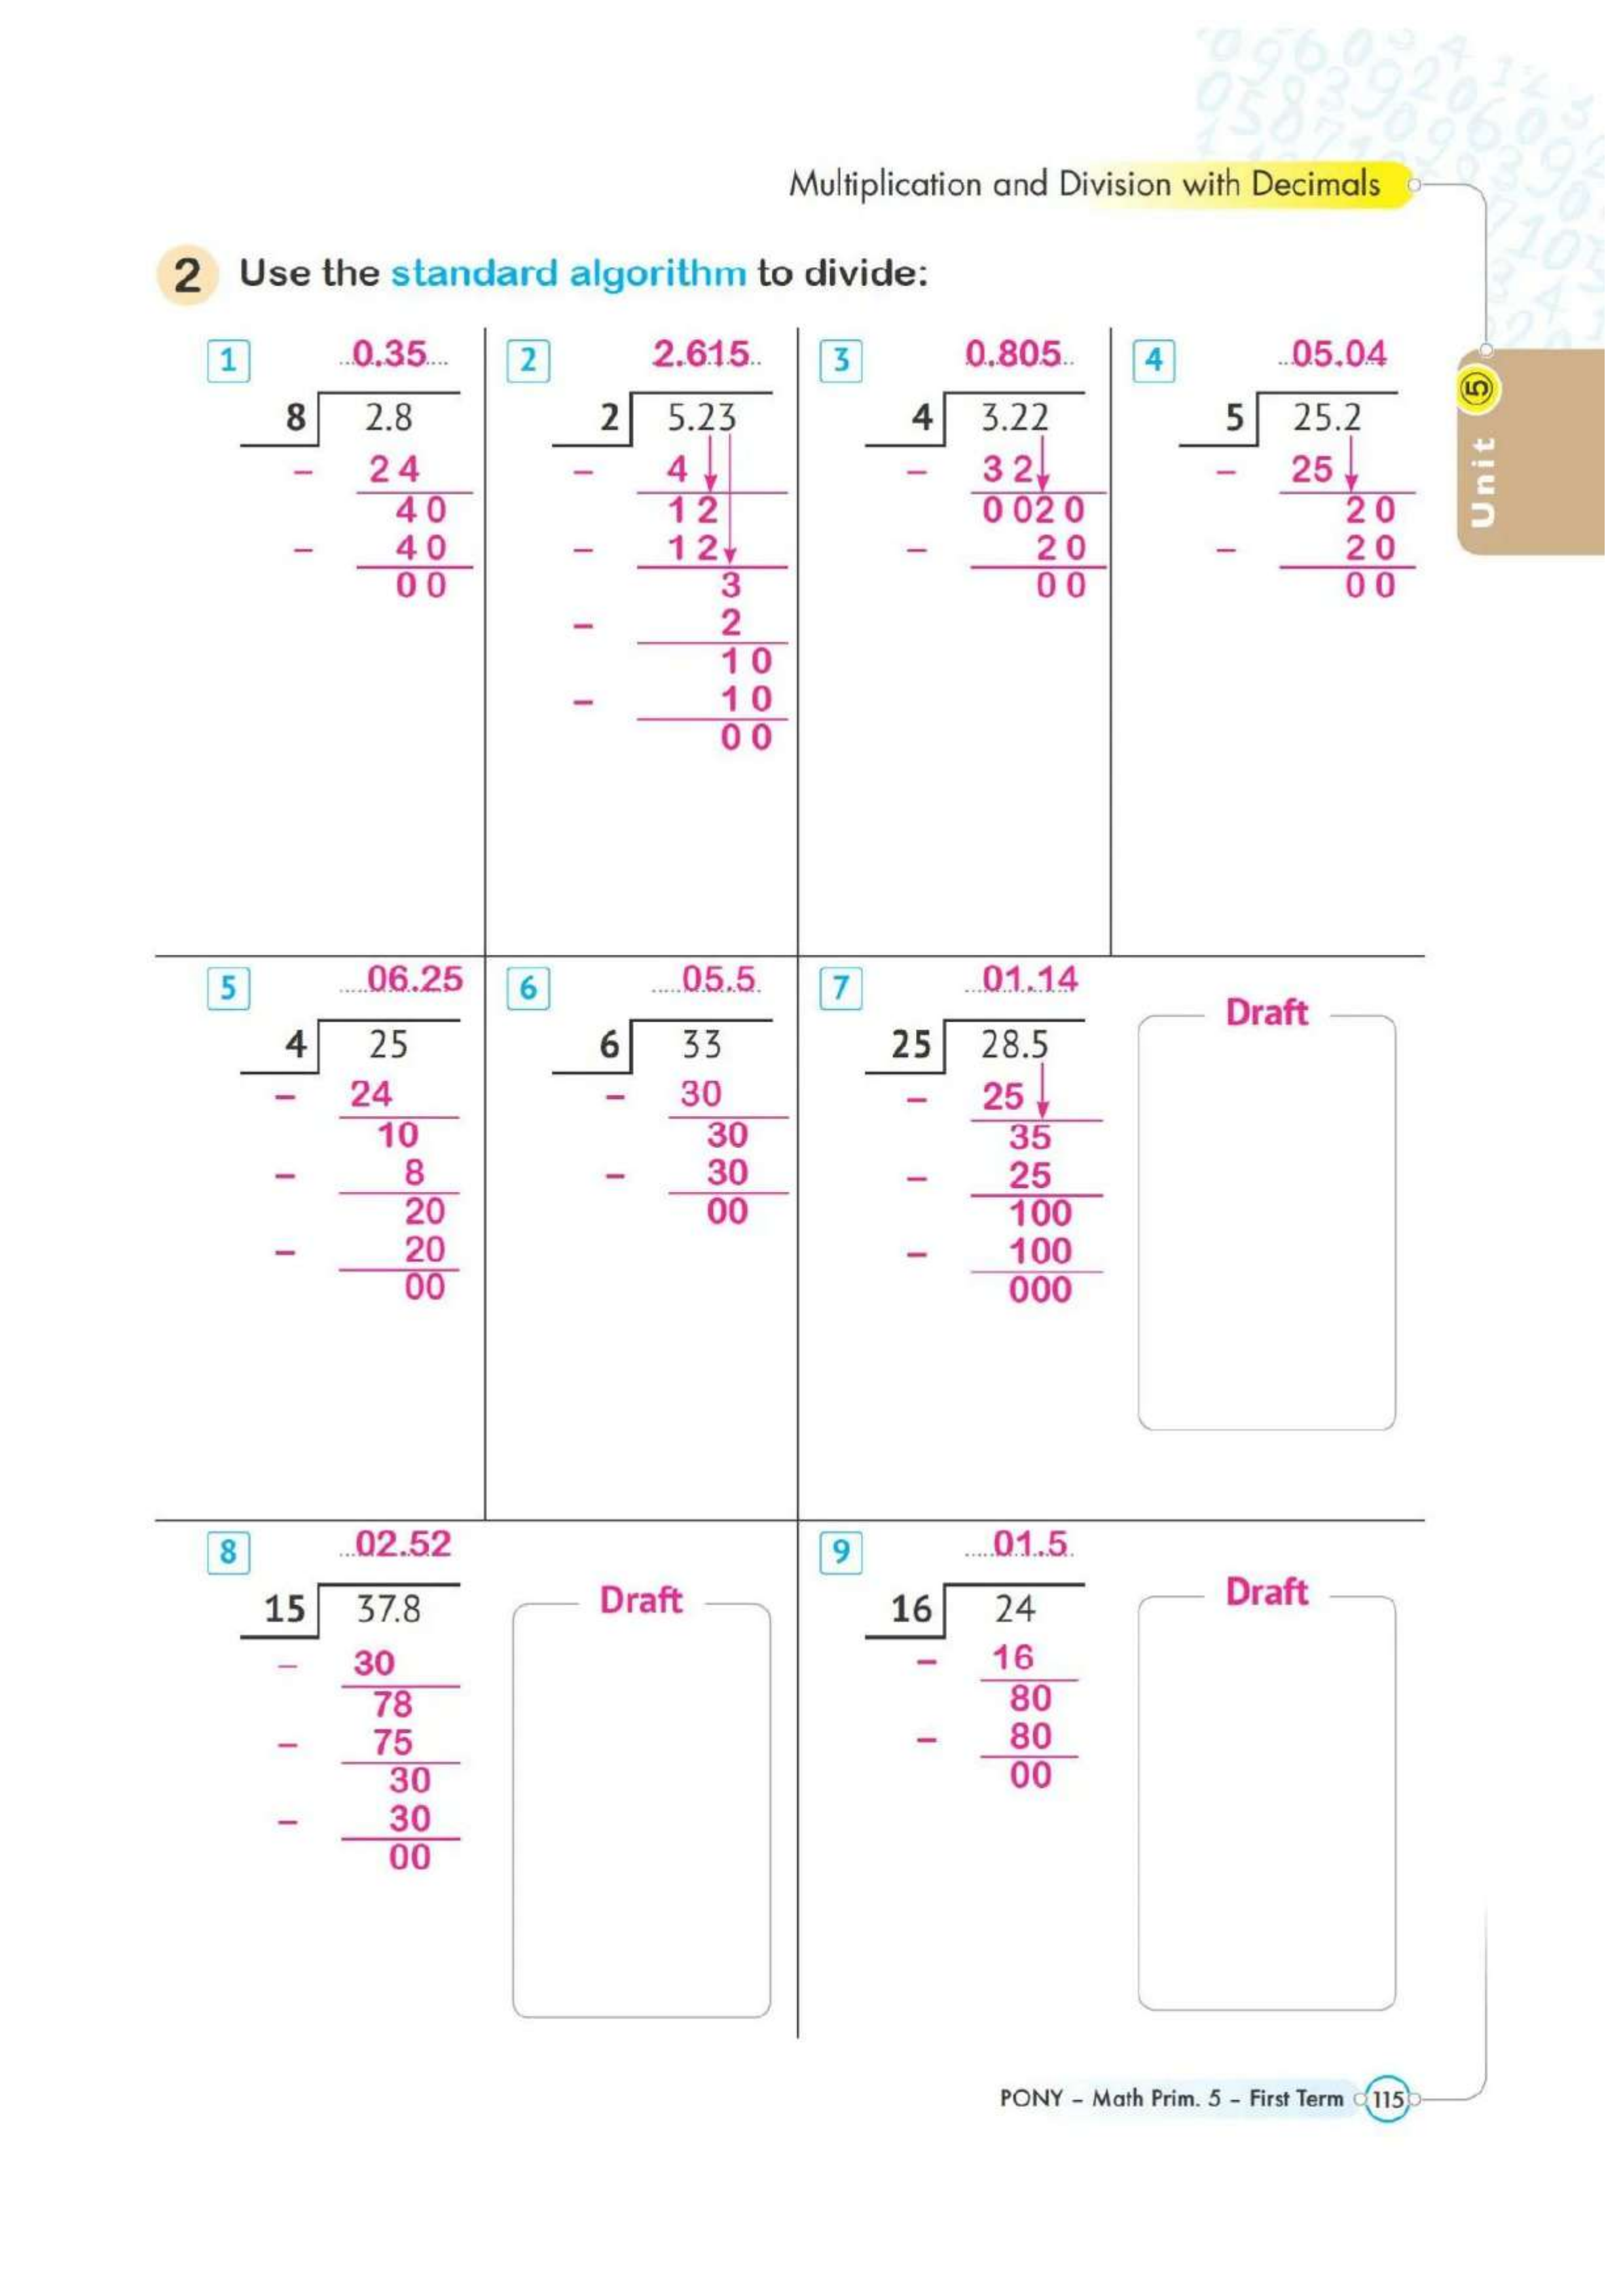 Multiplication and Division with Decimals
2 Use the standard algorithm to divide:
1
0.35
8 2.8
– 2 4
4 0
– 4 0
0 0
2
2.615
2 5.23
– 4
1 2
– 1 2
3
– 2
1 0
– 1 0
0 0
3
0.805
4 3.22
– 3 2
0 0 2 0
– 2 0
0 0
4
05.04
5 25.2
– 25
2 0
– 2 0
0 0
Unit 5
5
06.25
4 25
– 24
10
– 8
20
– 20
00
6
05.5
6 33
– 30
30
– 30
00
7
01.14
25 28.5
– 25
35
– 25
100
– 100
000
Draft
8
02.52
15 37.8
– 30
78
– 75
30
– 30
00
Draft
9
01.5
16 24
– 16
80
– 80
00
Draft
PONY – Math Prim. 5 – First Term 115